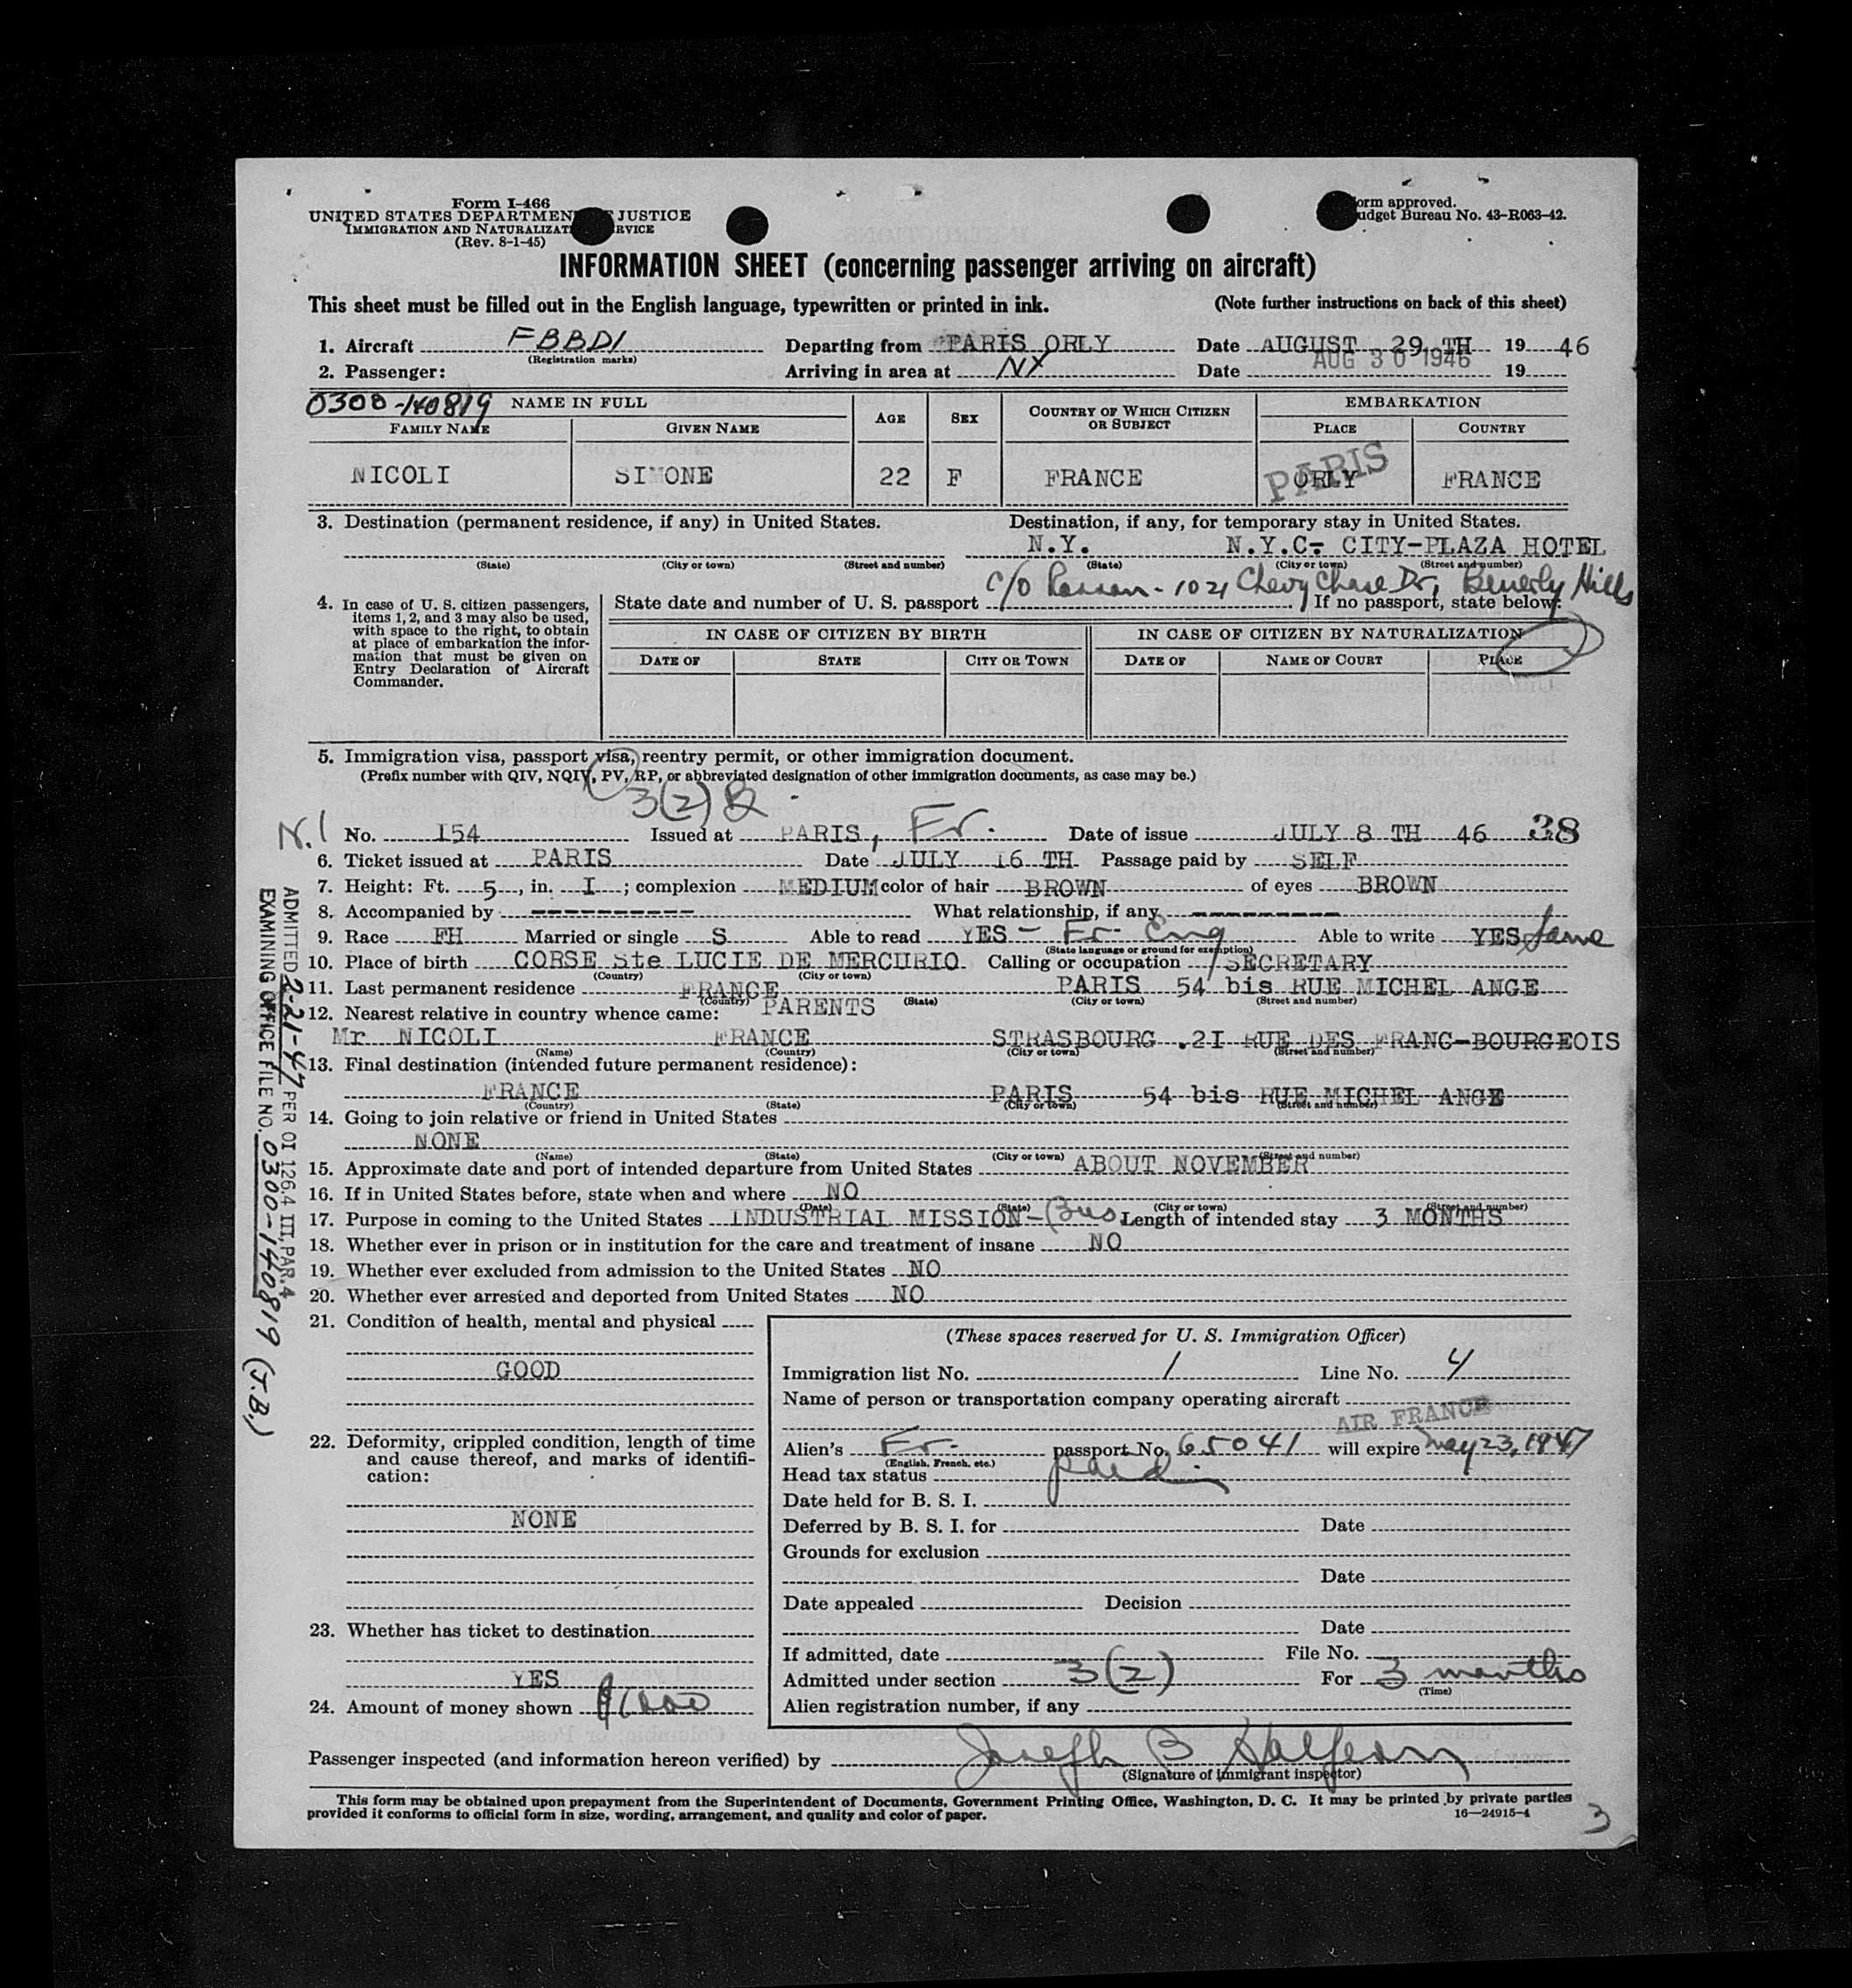 Form I-466
UNITED STATES DEPARTMEN JUSTICE
IMMIGRATION AND NATURALIZAT RVICE
(Rev. 8-1-45)
orm approved.
udget Bureau No. 43-R063-42.
INFORMATION SHEET (concerning passenger arriving on aircraft)
This sheet must be filled out in the English language, typewritten or printed in ink. (Note further instructions on back of this sheet)
1. Aircraft FBBDI Departing from PARIS ORLY Date AUGUST 29 TH 19 46
(Registration marks)
2. Passenger: Arriving in area at NY Date AUG 30 1946 19
0300-140819 NAME IN FULL AGE SEX COUNTRY OF WHICH CITIZEN OR SUBJECT EMBARKATION
FAMILY NAME GIVEN NAME PLACE COUNTRY
NICOLI SIMONE 22 F FRANCE ORLY PARIS FRANCE
3. Destination (permanent residence, if any) in United States. Destination, if any, for temporary stay in United States.
N.Y. N.Y.C- CITY-PLAZA HOTEL
(State) (City or town) (Street and number) (State) (City or town) (Street and number)
c/o - 1021 Chevy Chase Dr, Beverly Hills
4. In case of U. S. citizen passengers, items 1, 2, and 3 may also be used, with space to the right, to obtain at place of embarkation the information that must be given on Entry Declaration of Aircraft Commander.
State date and number of U. S. passport If no passport, state below:
IN CASE OF CITIZEN BY BIRTH IN CASE OF CITIZEN BY NATURALIZATION
DATE OF STATE CITY OR TOWN DATE OF NAME OF COURT PLACE
5. Immigration visa, passport visa, reentry permit, or other immigration document.
(Prefix number with QIV, NQIV, PV, RP, or abbreviated designation of other immigration documents, as case may be.)
3(2)
No. I54 Issued at PARIS, Fr. Date of issue JULY 8 TH 46 38
6. Ticket issued at PARIS Date JULY I6 TH Passage paid by SELF
7. Height: Ft. 5, in. I; complexion MEDIUM color of hair BROWN of eyes BROWN
8. Accompanied by ---------- What relationship, if any ---------
9. Race FH Married or single S Able to read YES - Fr. Eng Able to write YES Same
(State language or ground for exemption)
10. Place of birth CORSE Ste LUCIE DE MERCURIO Calling or occupation SECRETARY
(Country) (City or town)
11. Last permanent residence FRANCE PARIS 54 bis RUE MICHEL ANGE
(Country) (State) (City or town) (Street and number)
12. Nearest relative in country whence came: PARENTS
Mr NICOLI FRANCE STRASBOURG .2I RUE DES FRANC-BOURGEOIS
(Name) (Country) (City or town) (Street and number)
13. Final destination (intended future permanent residence):
FRANCE PARIS 54 bis RUE MICHEL ANGE
(Country) (State) (City or town) (Street and number)
14. Going to join relative or friend in United States
NONE
(Name) (State) (City or town) (Street and number)
15. Approximate date and port of intended departure from United States ABOUT NOVEMBER
16. If in United States before, state when and where NO
(Date) (State) (City or town) (Street and number)
17. Purpose in coming to the United States INDUSTRIAL MISSION - Bus Length of intended stay 3 MONTHS
18. Whether ever in prison or in institution for the care and treatment of insane NO
19. Whether ever excluded from admission to the United States NO
20. Whether ever arrested and deported from United States NO
21. Condition of health, mental and physical
GOOD
22. Deformity, crippled condition, length of time and cause thereof, and marks of identification:
NONE
23. Whether has ticket to destination
YES
24. Amount of money shown $1000
(These spaces reserved for U. S. Immigration Officer)
Immigration list No. 1 Line No. 4
Name of person or transportation company operating aircraft
AIR FRANCE
Alien's Fr. passport No. 65041 will expire May 23, 1947
(English, French, etc.)
Head tax status paid
Date held for B. S. I.
Deferred by B. S. I. for Date
Grounds for exclusion
Date
Date appealed Decision
Date
If admitted, date File No.
Admitted under section 3(2) For 3 months
(Time)
Alien registration number, if any
Passenger inspected (and information hereon verified) by Joseph B Halpern
(Signature of immigrant inspector)
This form may be obtained upon prepayment from the Superintendent of Documents, Government Printing Office, Washington, D. C. It may be printed by private parties
provided it conforms to official form in size, wording, arrangement, and quality and color of paper. 16—24915-4
3
ADMITTED 2-21-47 PER OI 126.4 III, PAR. 4
EXAMINING OFFICE FILE NO. 0300-140819 (J.B.)